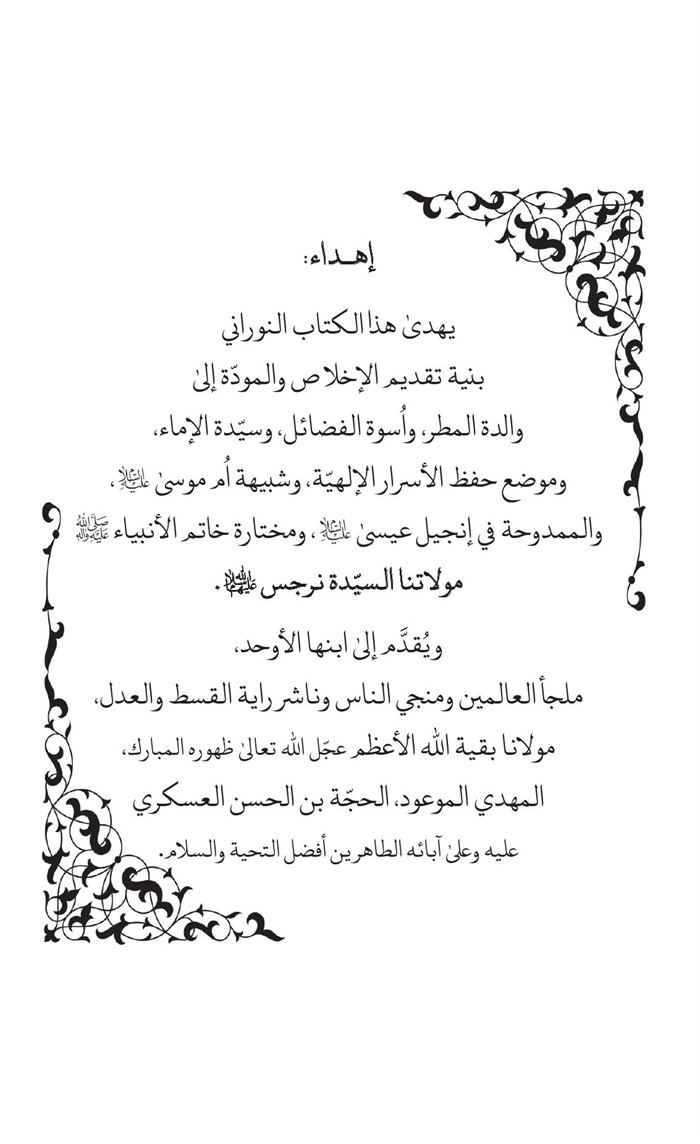 إهـداء:
يهدىٰ هذا الكتاب النوراني
بنية تقديم الإخلاص والمودّة إلىٰ
والدة المطر، واُسوة الفضائل، وسيّدة الإماء،
وموضع حفظ الأسرار الإلهيّة، وشبيهة اُم موسىٰ عليه السلام،
والممدوحة في إنجيل عيسىٰ عليه السلام، ومختارة خاتم الأنبياء صلى الله عليه وآله
مولاتنا السيّدة نرجس سلام الله عليها.
ويُقدَّم إلىٰ ابنها الأوحد،
ملجأ العالمين ومنجي الناس وناشر راية القسط والعدل،
مولانا بقية الله الأعظم عجّل الله تعالىٰ ظهوره المبارك،
المهدي الموعود، الحجّة بن الحسن العسكري
عليه وعلىٰ آبائه الطاهرين أفضل التحية والسلام.